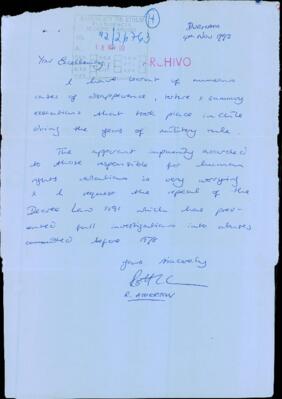 4
DURHAM
4th Nov 1992
92/26763
ARCHIVO
Your Excellency,
I have learnt of numerous
cases of disappearence, torture & summary
executions that took place in Chile
during the years of military rule.
The apparent impunity accorded
to those responsible for human
rights violations is very worrying
& I request the repeal of the
Decree Law 2191 which has prev-
ented full investigations into abuses
committed before 1978
Yours sincerely
R. ATHERTON